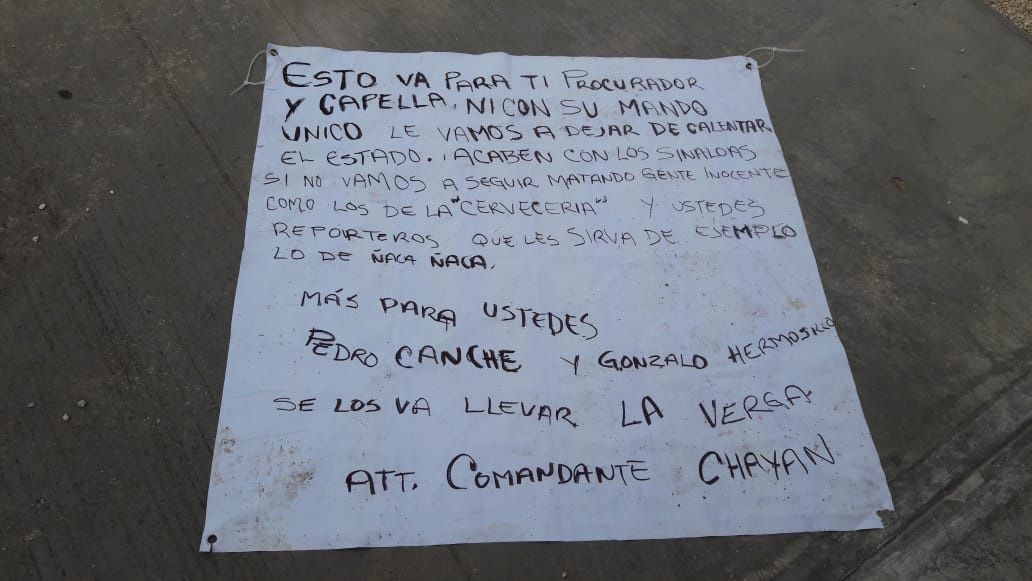 ESTO VA PARA TI PROCURADOR
Y CAPELLA. NI CON SU MANDO
UNICO LE VAMOS A DEJAR DE CALENTAR
EL ESTADO. ACABEN CON LOS SINALOAS
SI NO VAMOS A SEGUIR MATANDO GENTE INOCENTE
COMO LOS DE LA "CERVECERIA" Y USTEDES
REPORTEROS QUE LES SIRVA DE EJEMPLO
LO DE ÑACA ÑACA.
MÁS PARA USTEDES
PEDRO CANCHE Y GONZALO HERMOSILLO
SE LOS VA LLEVAR LA VERGA
ATT. COMANDANTE CHAYAN